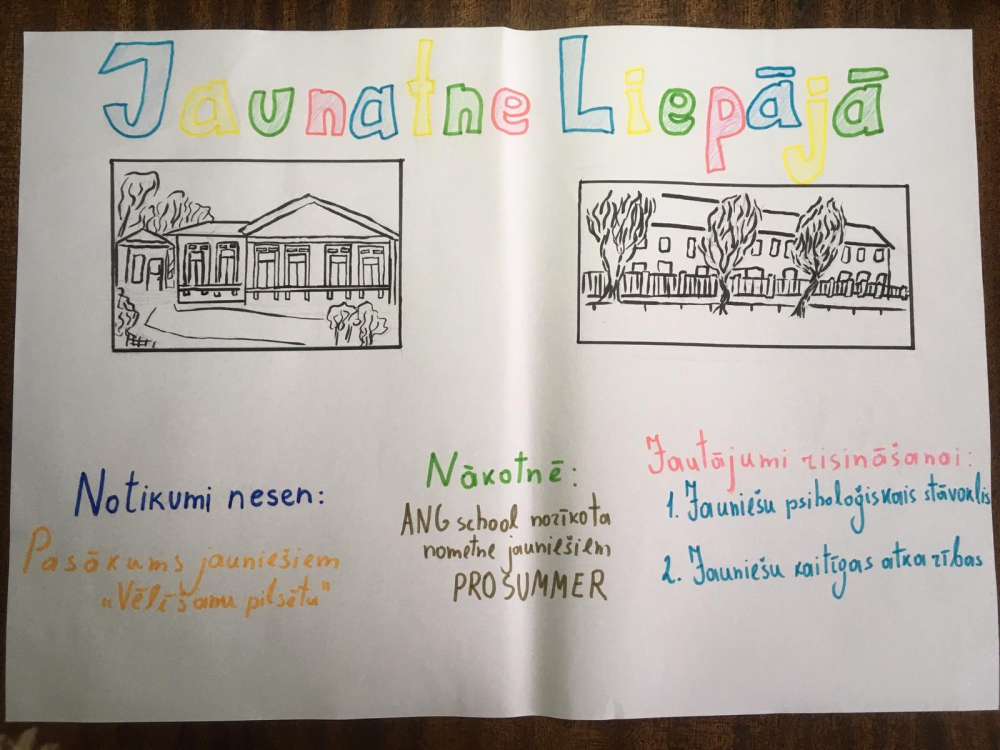 Jaunatne Liepājā
Notikumi nesen:
Pasākums jauniešiem
"Vēlēšanu pilsētu"
Nākotnē:
ANG school norīkota
nometne jauniešiem
PRO SUMMER
Jautājumi risināšanai:
1. Jauniešu psiholoģiskais stāvoklis
2. Jauniešu kaitīgas atkarības